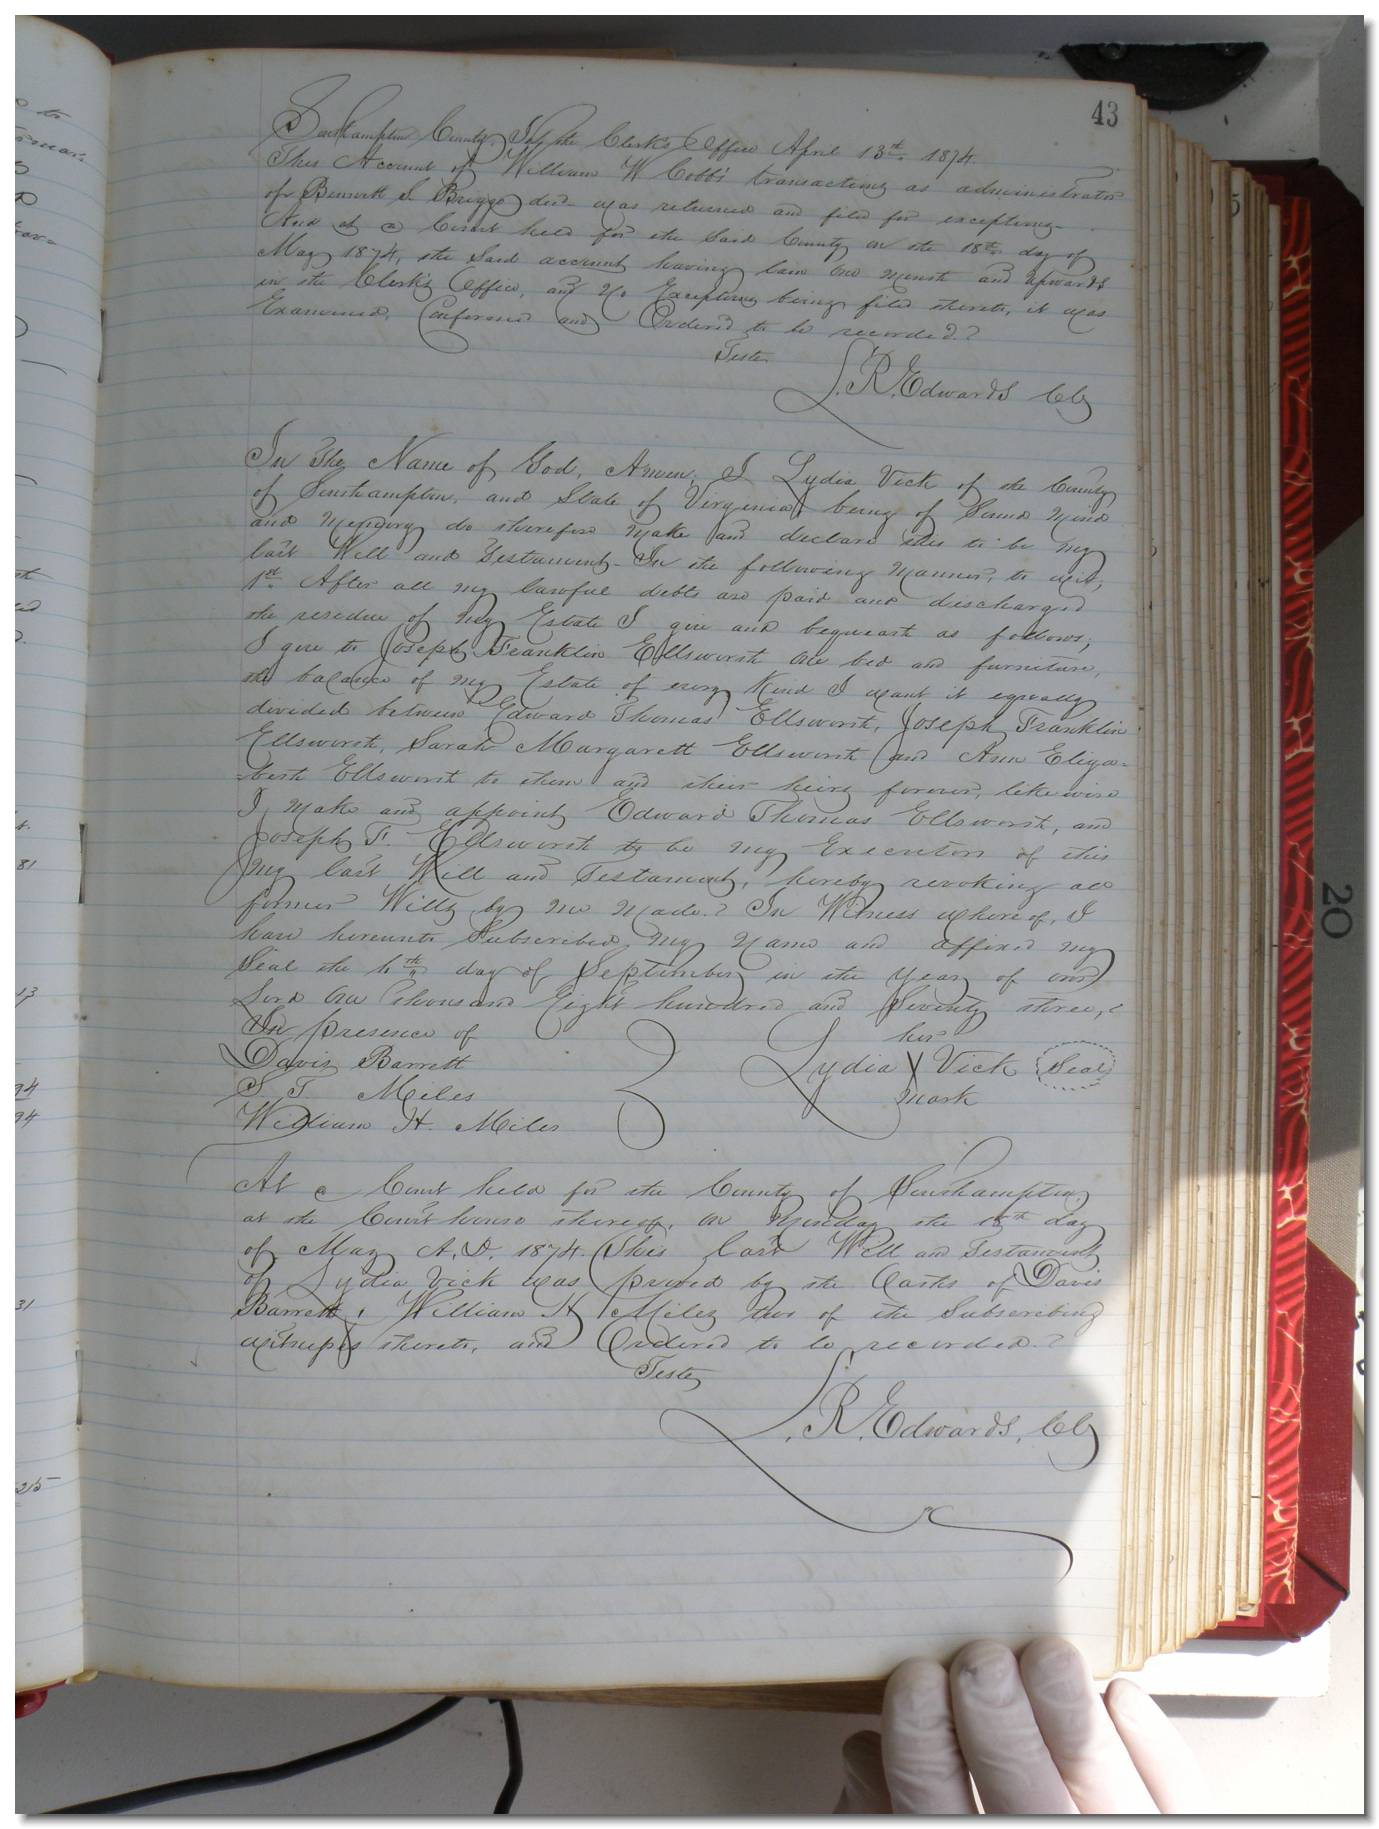 43
Southampton County, In the Clerk's Office April 13th 1874.
This Account of William W Cobb's transactions as administrator
of Bennett S. Briggs decd was returned and filed for exceptions.
And at a Court held for the said County on the 18th day of
May 1874, the said account having lain one month and upwards
in the Clerk's Office, and No Exceptions being filed thereto, it was
Examined, Confirmed and Ordered to be recorded.
Teste
L. R. Edwards Clk
In The Name of God, Amen, I Lydia Vick of the County
of Southampton, and State of Virginia being of Sound Mind
and Memory do therefore Make and declare this to be my
last Will and Testament. In the following Manner, to wit;
1st After all my lawful debts are paid and discharged
the residue of my Estate I give and bequeath as follows;
I give to Joseph Franklin Ellsworth one bed and furniture,
the balance of my Estate of every Kind I want it equally
divided between Edward Thomas Ellsworth, Joseph Franklin
Ellsworth, Sarah Margarett Ellsworth and Ann Eliza-
beth Ellsworth to them and their heirs forever, likewise
I Make and appoint Edward Thomas Ellsworth, and
Joseph F. Ellsworth to be my Executors of this
my last Will and Testament, hereby revoking all
former Wills by me Made. In Witness whereof, I
have hereunto Subscribed my Name and affixed my
Seal the day of September in the Year of our
Lord One thousand Eight hundred and Seventy three,
In presence of
her
Davis Barrett
Lydia X Vick Seal
S. T. Miles
mark
William H. Miles
At a Court held for the County of Southampton,
at the Courthouse thereof, on Monday the 18th day
of May A.D. 1874. This last Will and Testament
of Lydia Vick was proved by the Oaths of Davis
Barrett & William H Miles two of the Subscribing
witnesses thereto, and Ordered to be recorded.
Teste
L. R. Edwards, Clk
81
13
94
94
31
20